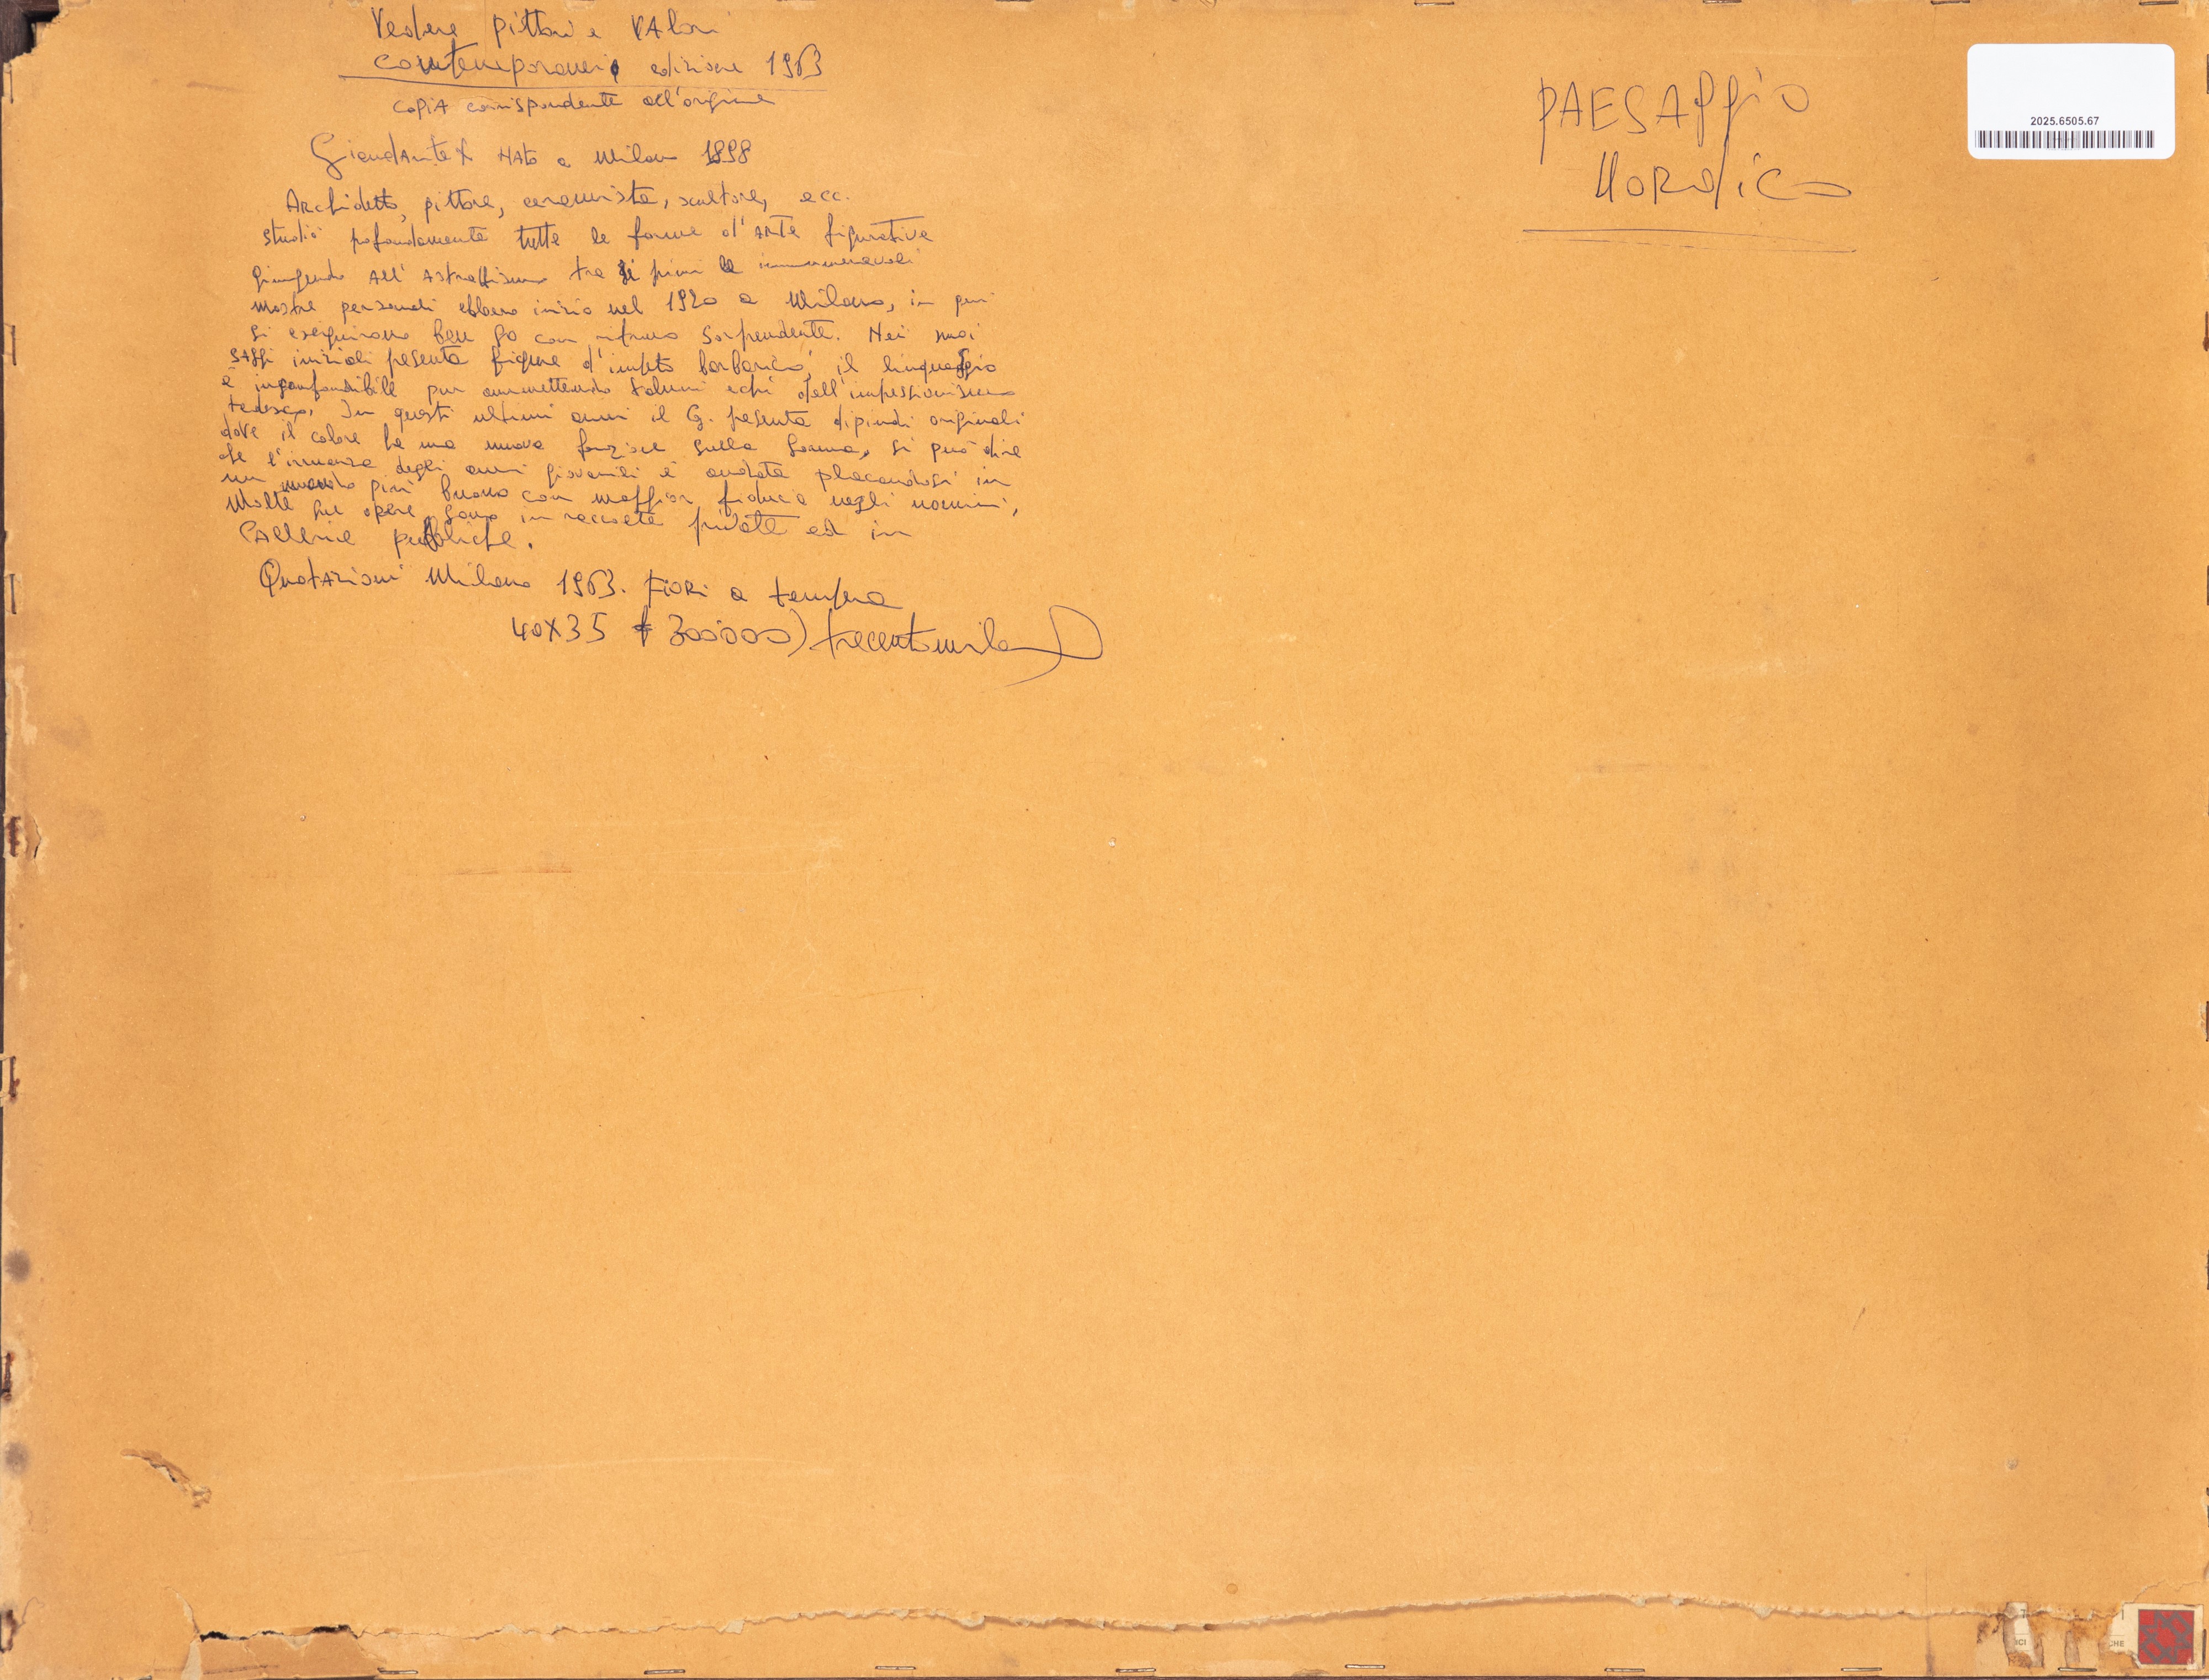 Vedere pittori e VAlori
contemporanei edizione 1963
copiA corrispondente all'origine
GiandAnte X NAto a Milano 1898
Archidetto, pittore, ceramista, scultore, ecc.
studiò pofondamente tutte le forme d'ARTe figurative
giungendo All'Astrattismo tra i primi le innumerevoli
mostre personali ebbero inizio nel 1920 a Milano, in poi
si eseguirono ben 80 con ritmo sorprendente. Nei suoi
SAggi iniziali presenta figure d'impeto barbarico, il linguaggio
è inconfondibile pur ammettendo taluni echi dell'impessionismo
tedesco. In questi ultimi anni il G. presenta dipindi originali
dove il colore ha una nuova funzione sulla forma, si può dire
che l'irruenza degli anni giovanili è andata placandosi in
un mondo più buono con maggior fiducia negli uomini,
Molte sue opere sono in raccolte private ed in
GAllerie pubbliche.
QuotAzioni Milano 1963. FioRi a tempra
40X35 £ 300000) trecentomila
PAESAggio
NoRdico
2025.6505.67
ICI
CHE